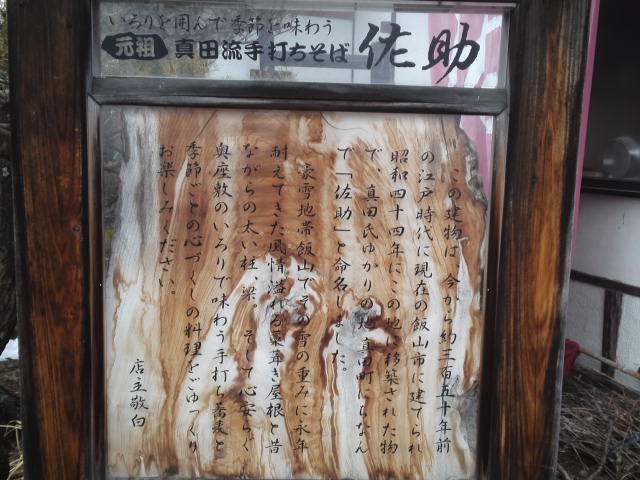 いろりを囲んで季節を味わう
元祖 真田流手打ちそば 佐助
この建物は、今から約三百五十年前
の江戸時代に現在の飯山市に建てられ
昭和四十四年にこの地に移築された物
で、真田氏ゆかりの地真田町にちなん
で「佐助」と命名しました。
豪雪地帯飯山でその雪の重みに永年
耐えてきた風情溢れる茅葺き屋根と昔
ながらの太い柱、梁、そして心安らぐ
奥座敷のいろりで味わう手打ち蕎麦と
季節ごとの心づくしの料理をごゆっくり
お楽しみください。
店主敬白